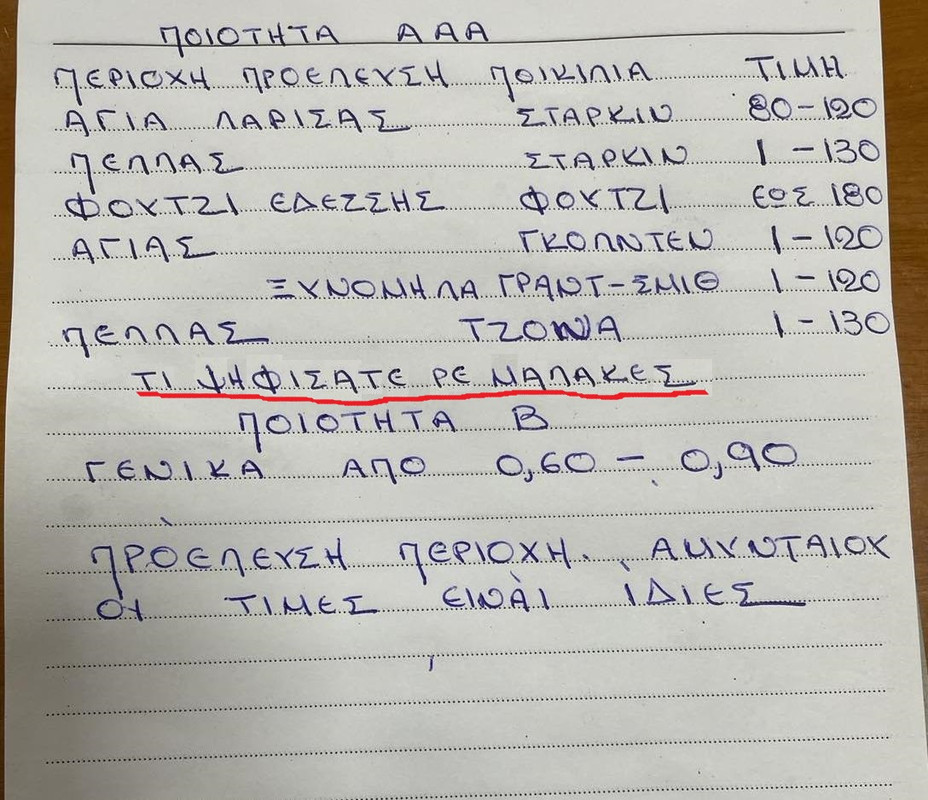 ΠΟΙΟΤΗΤΑ ΑΑΑ
ΠΕΡΙΟΧΗ ΠΡΟΕΛΕΥΣΗ ΠΟΙΚΙΛΙΑ ΤΙΜΗ
ΑΓΙΑ ΛΑΡΙΣΑΣ ΣΤΑΡΚΙΝ 80-120
ΠΕΛΛΑΣ ΣΤΑΡΚΙΝ 1-130
ΦΟΥΤΖΙ ΕΔΕΣΣΗΣ ΦΟΥΤΖΙ ΕΩΣ 180
ΑΓΙΑΣ ΓΚΟΛΝΤΕΝ 1-120
ΞΥΝΟΜΗΛΑ ΓΡΑΝΤ-ΣΜΙΘ 1-120
ΠΕΛΛΑΣ ΤΖΟΝΑ 1-130
ΤΙ ΨΗΦΙΣΑΤΕ ΡΕ ΜΑΛΑΚΕΣ
ΠΟΙΟΤΗΤΑ Β
ΓΕΝΙΚΑ ΑΠΟ 0,60 - 0,90
ΠΡΟΕΛΕΥΣΗ ΠΕΡΙΟΧΗ. ΑΜΥΝΤΑΙΟΥ
ΟΙ ΤΙΜΕΣ ΕΙΝΑΙ ΙΔΙΕΣ